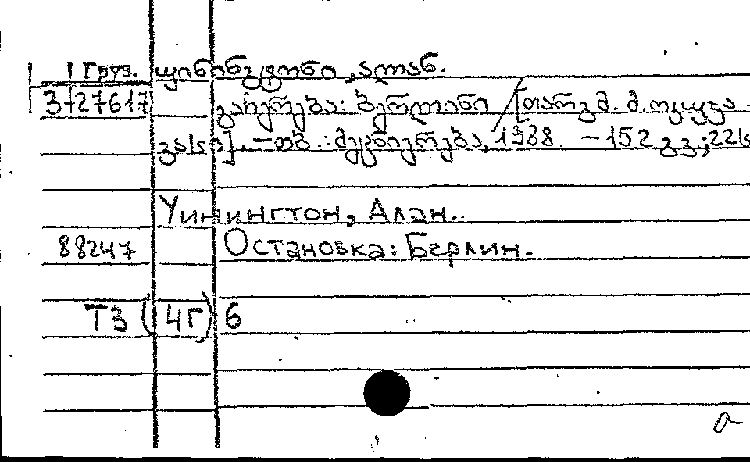 1 Груз. უინინგტონი, ალან.
3-27617 გაჩერება: ბერლინი / [თარგმ. მ.
ვასი]. – თბ.: მეცნიერება, 1988. – 152 გვ.; 22
Уинингтон, Алан.
88247 Остановка: Берлин.
Т3 (4Г) 6